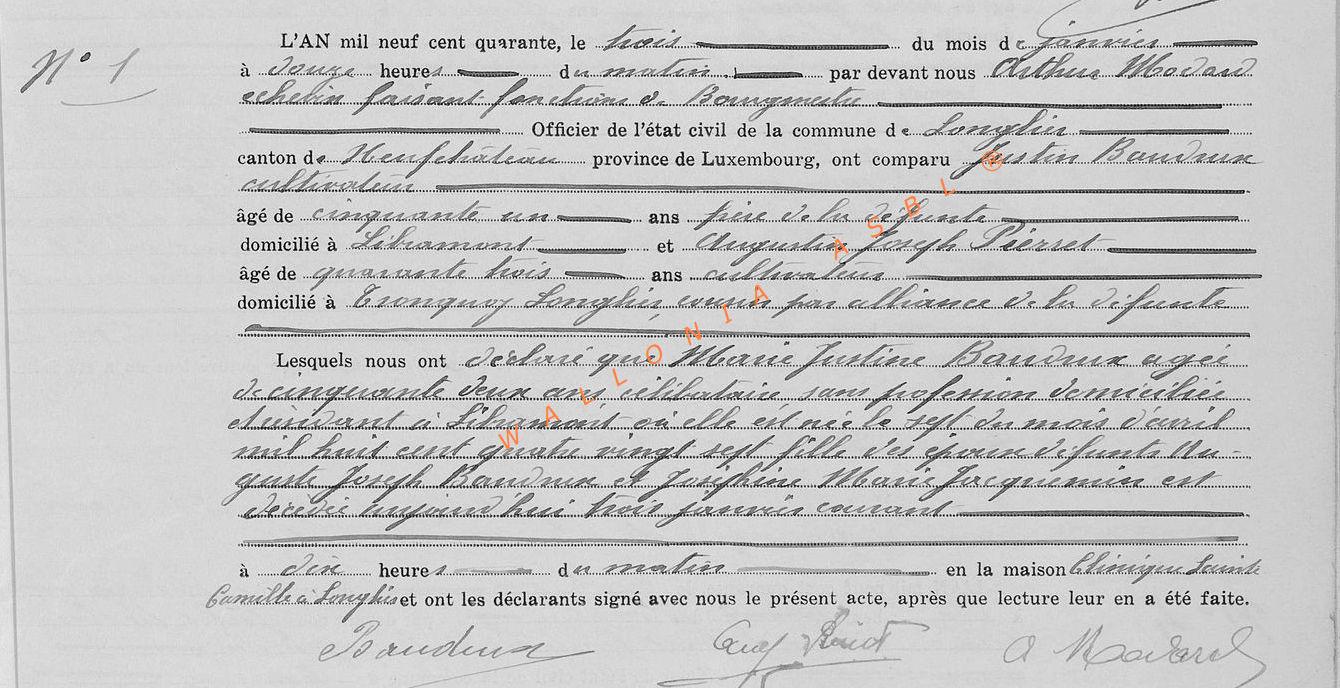 N° 1
L'AN mil neuf cent quarante, le trois du mois de janvier
à douze heures du matin par devant nous Arthur Modard
echevin faisant fonctions de Bourgmestre
Officier de l'état civil de la commune de Longlier
canton de Neufchâteau province de Luxembourg, ont comparu Justin Baudrux
cultivateur
âgé de cinquante un ans frère de la défunte
domicilié à Libramont et Augustin Joseph Pierret
âgé de quarante trois ans cultivateur
domicilié à Tronquoy Longlier, cousin par alliance de la défunte
Lesquels nous ont déclaré que Marie Justine Baudrux agée
de cinquante deux ans, célibataire, sans profession domiciliée
et résidant à Libramont où elle est née le sept du mois d'avril
mil huit cent quatre vingt sept fille des époux défunts Au-
guste Joseph Baudrux et Joséphine Marie Jacquemin est
décédée aujourd'hui trois janvier courant
à dix heures du matin en la maison Clinique Sainte
Camille à Longlier et ont les déclarants signé avec nous le présent acte, après que lecture leur en a été faite.
Baudrux A Modard
WALLONIA ASBL ®